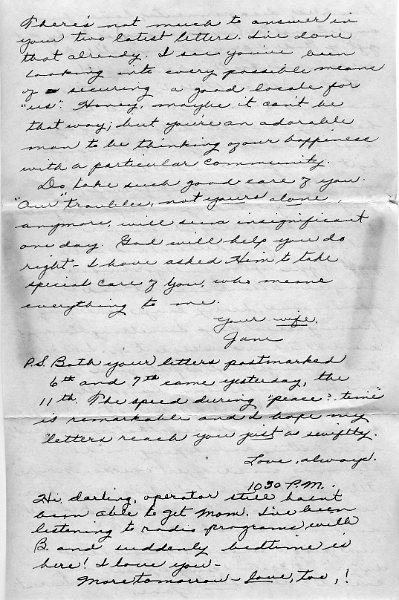 There's not much to answer in
your two latest letters. I've done
that already. I see you've been
looking into every possible means
of securing a good locale for
"us". Honey, maybe it can't be
that way, but you're an adorable
man to be thinking of our happiness
with a particular community.
Do take such good care of you.
"Our" troubles, not yours alone,
anymore, will seem insignificant
one day. God will help you do
right - I have asked Him to take
special care of you, who means
everything to me.
Your wife,
Jane
P.S. Both your letters postmarked
6th and 7th came yesterday, the
11th. The speed during "peace? time"
is remarkable and I hope my
letters reach you just as swiftly.
Love, always.
10 30 P.M.
Hi, darling, operator still hasn't
been able to get Mom. I've been
listening to radio programs with
B. and suddenly bedtime is
here! I love you -
More tomorrow - love, too, !